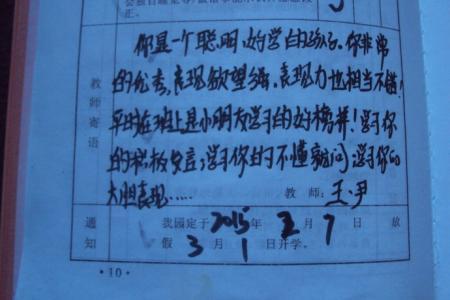 正。
教师寄语
你是一个聪明、好学的孩子。你非常
的优秀,表现欲望强,表现力也相当不错!
平时在班上是小朋友学习的好榜样!学习你
的积极发言;学习你的不懂就问;学习你的
大胆表现……
教师:王·尹
通知
我园定于2015年2月7日放
假3月1日开学。
·10·